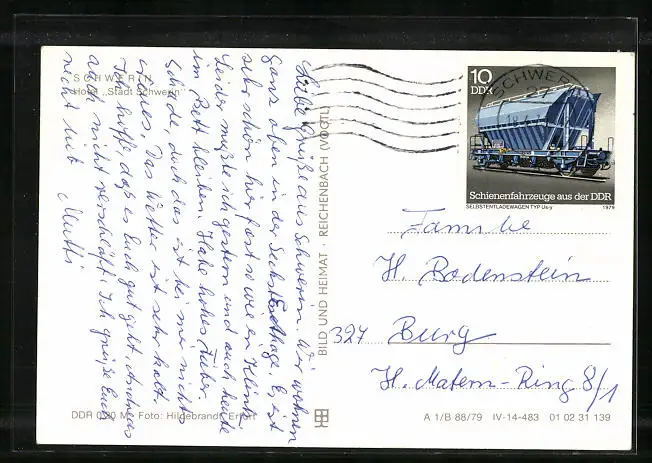 SCHWERIN
Hotel „Stadt Schwerin"
Liebe Grüße aus Schwerin. Wir wohnen
ganz oben in der Etage. Es ist
sehr schön hier fast so wie ein
Leider mußte ich gestern und auch heute
im Bett bleiben. Habe hohes Fieber.
Schade, doch das ist bei mir nichts
neues. Das Wetter ist sehr kalt.
Ich hoffe, daß es Euch gut geht
auch nicht verschläft. Ich grüße Euch
nicht mit Mutti
BILD UND HEIMAT · REICHENBACH (VOGTL)
10
DDR
SCHWERIN
Schienenfahrzeuge aus der DDR
SELBSTENTLADEWAGEN TYP Us-y 1979
Familie
H. Bodenstein
327 Burg
H. Matern-Ring 8/1
DDR 0,20 M Foto: Hildebrandt, Erfurt
A 1/B 88/79 IV-14-483 01 02 31 139